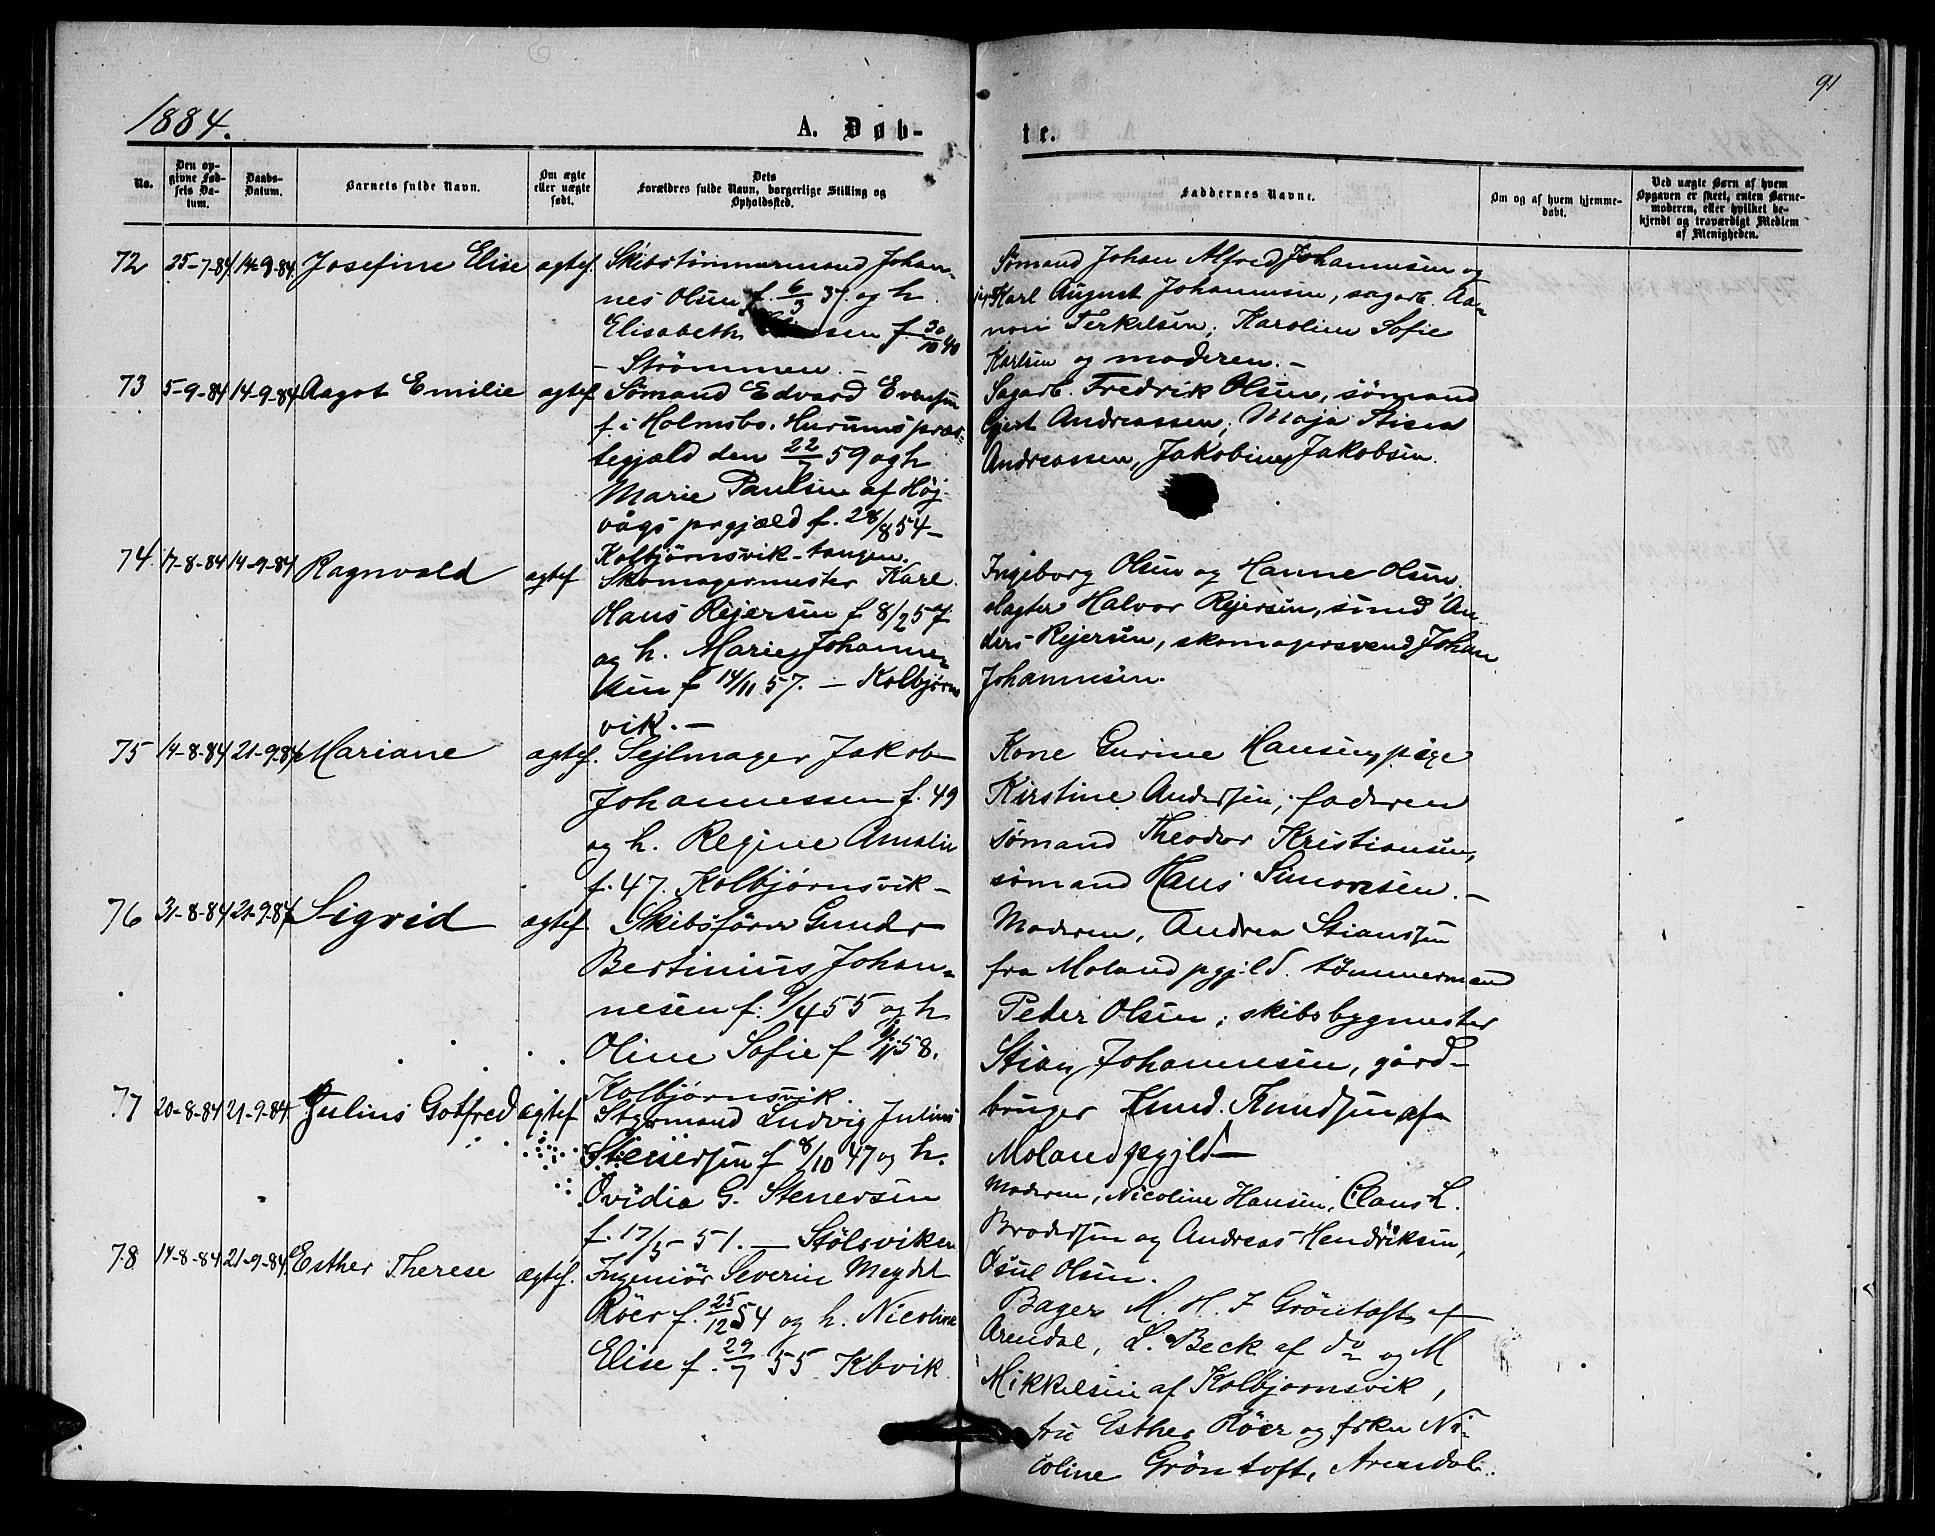 91
1884.
A. Døb-
te.
No.
Den op-
givne Fød-
sels Da-
tum.
Daabs-
Datum.
Barnets fulde Navn.
Om ægte
eller uægte
født.
Dets
Forældres fulde Navn, borgerlige Stilling og
Opholdssted.
Faddernes Navne.
Om og af hvem hjemme-
døbt.
Ved uægte Børn af hvem
Opgaven er skeet, enten Barne-
moderen, eller hvilket be-
kjendt og troværdigt Medlem
af Menigheden.
72 25-7-84 14-9-84 Josefine Elise ægtef. Skibstømmermand Johan-
nes Olsen f. 6/3 37. og h.
Elisabeth f. 30/10 40
- Strømmen. -
Sømand Johan Alfred Johannesen og
Karl August Johannesen, sagarb. Aa-
non Terkelsen, Karoline Sofie
Karlsen og moderen. -
73 5-9-84 14-9-84 Aagot Emilie ægtef Sømand Edvard Evensen
f. i Holmsbo, Hurums præs-
tegjæld den 22/7 59 og h
Marie Paulsen af Høj-
vågs prgjæld f. 28/8 54 -
Kolbjørnsvik-tangen.
Sagarb. Fredrik Olsen, sømand
Gjert Andreassen, Maja Stisen
Andreassen, Jakobine Jakobsen.
74. 17-8-84 14-9-84 Ragnvald ægtef Skomagermester Karl
Olaus Rejersen f 8/2 57
og h. Marie Johanne-
sen f 14/11 57. - Kolbjørns
vik. -
Ingeborg Olsen og Hanne Olsen.
slagter Halvor Rejersen, sømd An-
ders Rejersen, skomagersvend Johan
Johannesen.
75 14-8-84 21-9-84 Mariane ægtef. Sejlmager Jakob
Johannessen f. 49
og h. Regine Amalie
f. 47. Kolbjørnsvik -
Kone Gurine Hansen, pige
Kirstine Andersen, faderen
sømand Theodor Kristiansen,
sømand Hans Simonsen. -
76 31-8-84 21-9-84 Sigrid ægtef. Skibsfører Gunder
Bertinius Johan-
nesen f. 9/4 55 og h
Oline Sofie f 58.
Kolbjørnsvik.
Moderen, Andrea Stiansen
fra Moland pgjæld. tømmermand
Peder Olsen, skibsbygmester
Stian Johannesen, gård-
bruger Knud Knudsen af
Moland pgjld
77 20-8-84 21-9-84 Julius Gotfred ægtef Styrmand Ludvig Julius
Stenersen f 8/10 47 og h.
Ovidia G. Stenersen
f. 17/5 51. - Stølsviken
Moderen, Nicoline Hansen, Claus L.
Brodersen og Andreas Hendriksen,
Osul Olsen.
78 14-8-84 21-9-84 Esther Therese ægtef. Ingeniör Severin Meydel
Röer f. 25/12 54 og h. Nicoline
Elise f. 29/7 55 Kbvik
Bager M. H. F Gröntoft af
Arendal, L. Beck af do og M
Mikkelsen af Kolbjørnsvik,
fru Esther Röer og frkn Ni-
coline Gröntoft, Arendal.